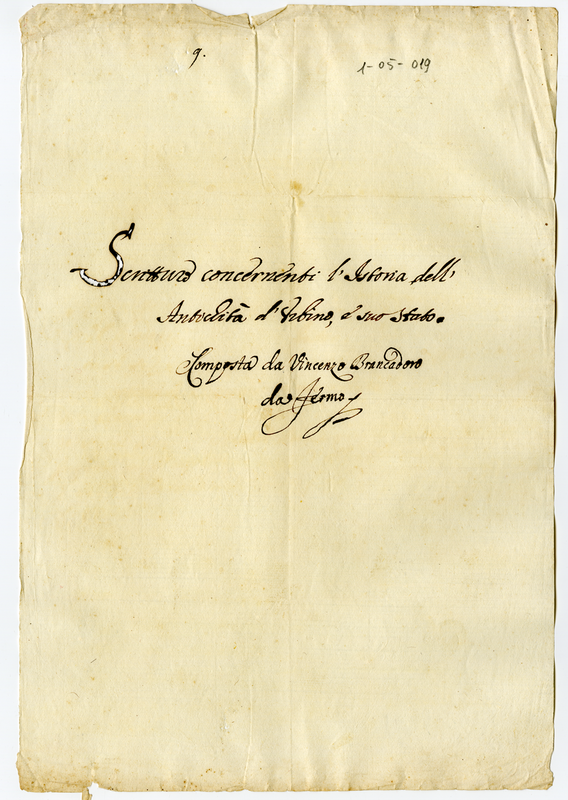 9.
1-05-019
Scritture concernenti l'Istoria dell'
Antichità d'Urbino, e suo stato.
Composta da Vincenzo Brancadoro
da Fermo